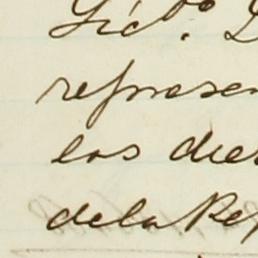 Licdo. D
represen
los dies
de la Rep